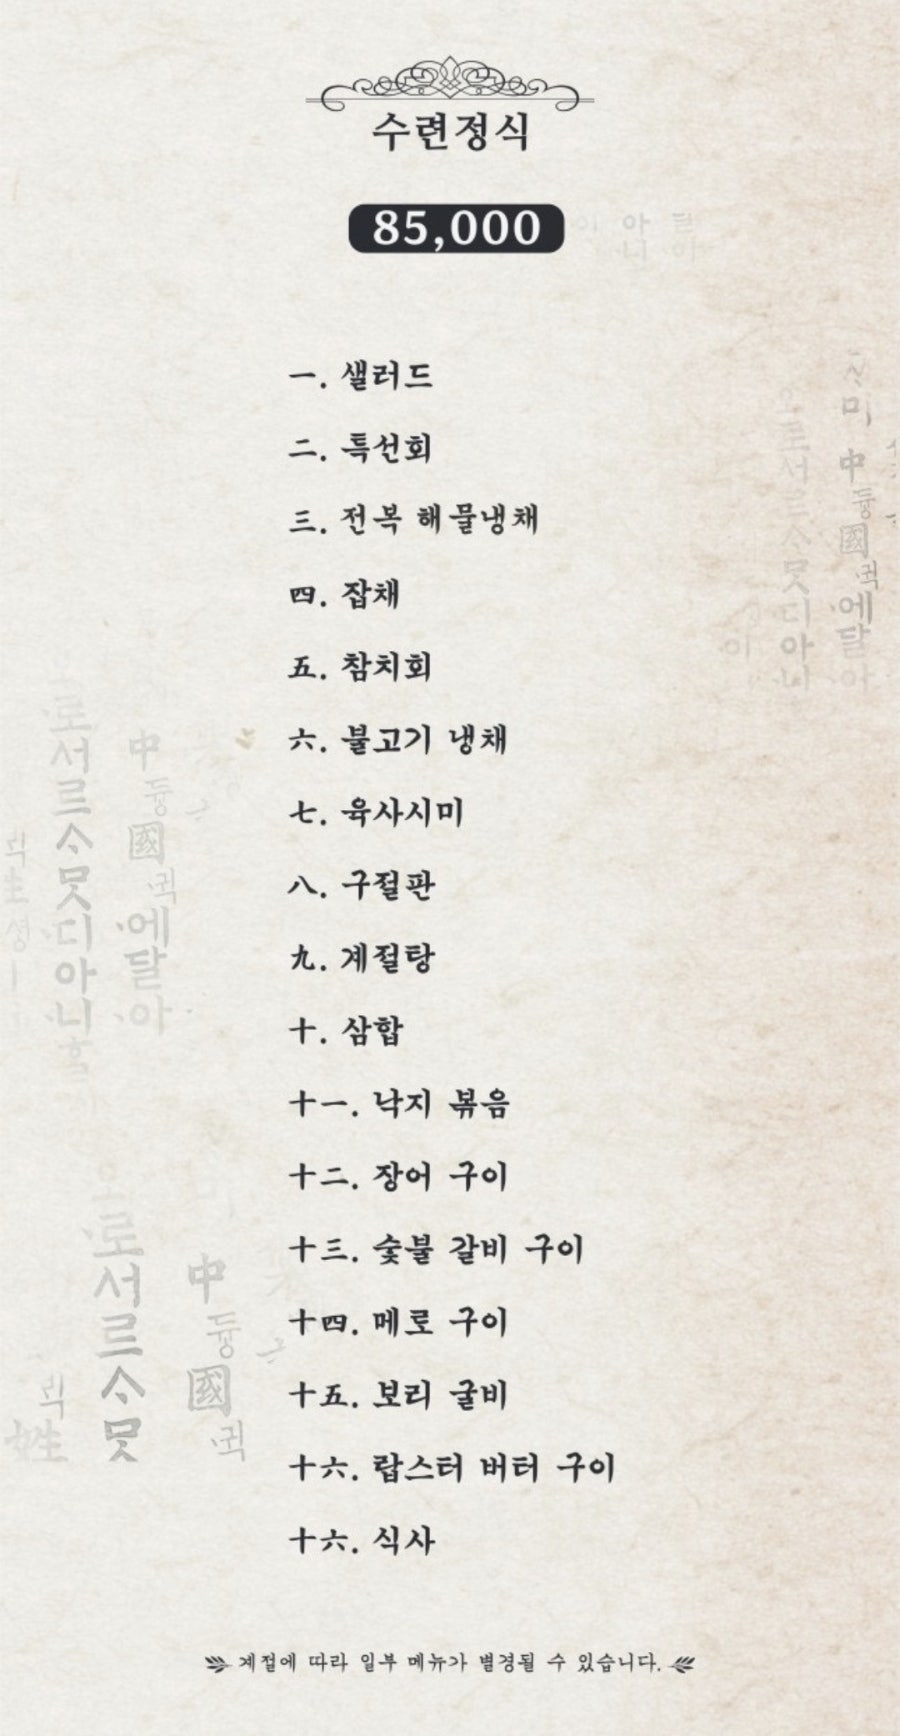 수련정식
85,000
一. 샐러드
二. 특선회
三. 전복 해물냉채
四. 잡채
五. 참치회
六. 불고기 냉채
七. 육사시미
八. 구절판
九. 계절탕
十. 삼합
十一. 낙지 볶음
十二. 장어 구이
十三. 숯불 갈비 구이
十四. 메로 구이
十五. 보리 굴비
十六. 랍스터 버터 구이
十六. 식사
계절에 따라 일부 메뉴가 변경될 수 있습니다.